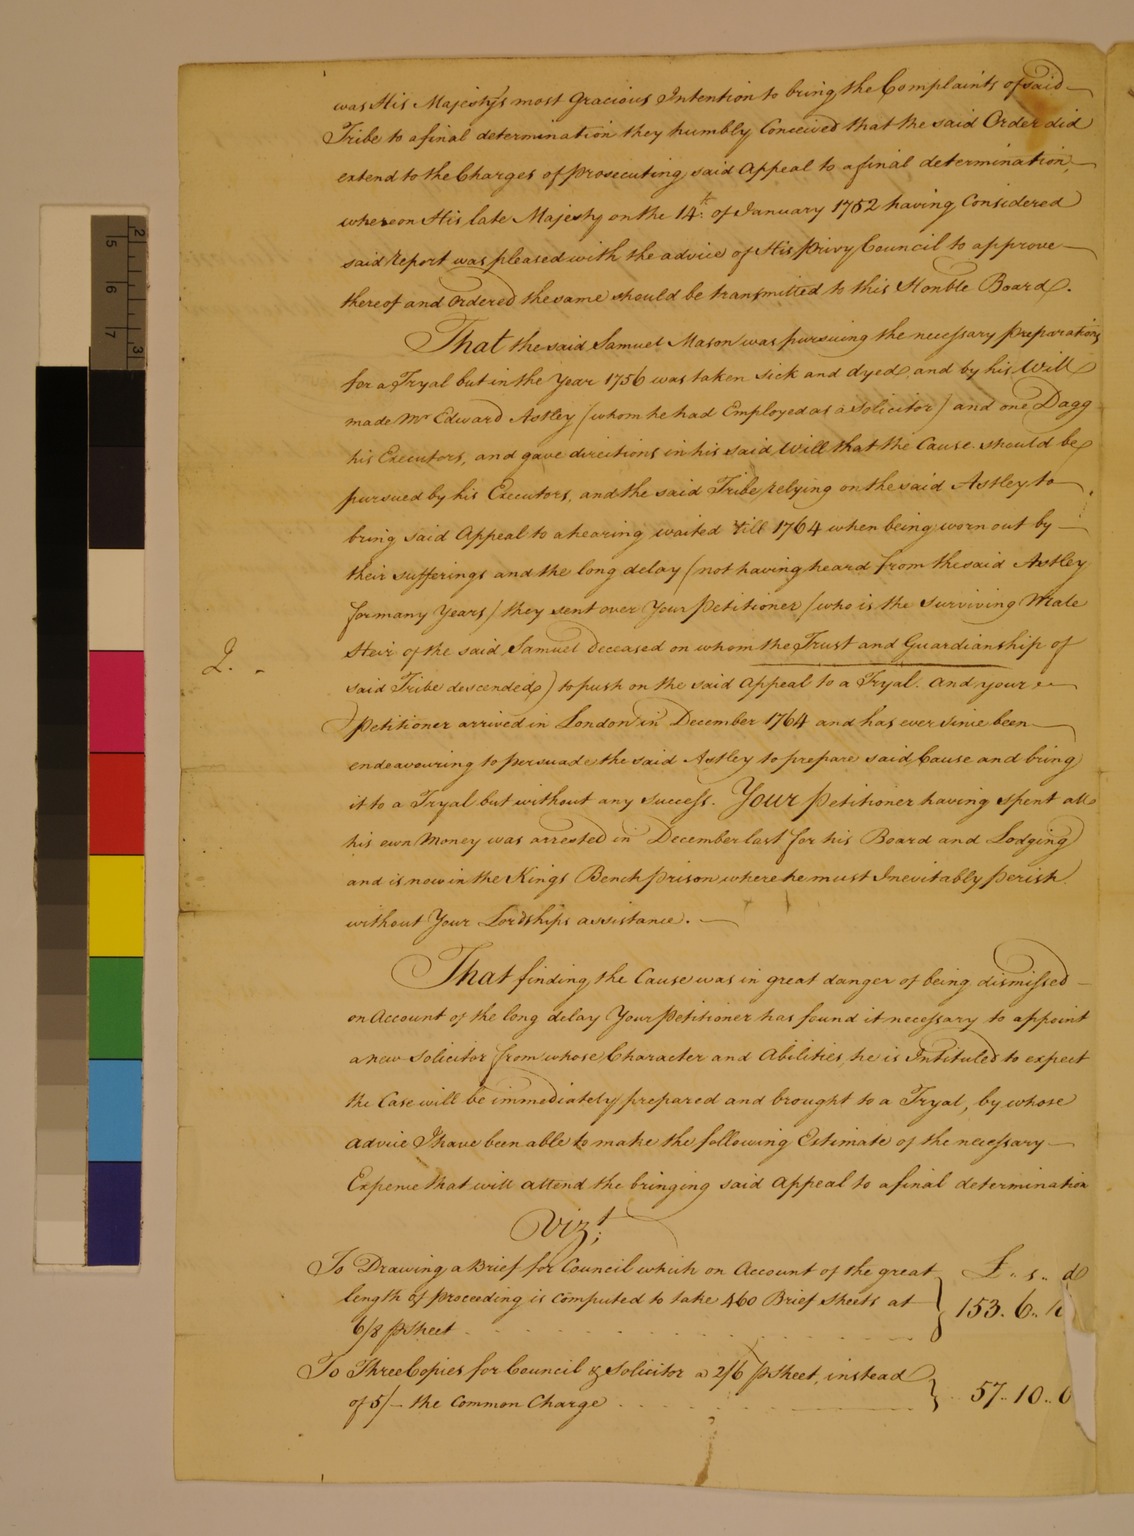 was His Majesty's most Gracious Intention to bring the Complaints of said
Tribe to a final determination they humbly Conceived that the said Order did
extend to the Charges of prosecuting said Appeal to a final determination,
whereon His late Majesty on the 14th. of January 1752 having Considered
said report was pleased with the advice of His Privy Council to approve
thereof and Ordered the same should be transmitted to this Honble Board.
That the said Samuel Mason was pursuing the necessary preparations
for a Tryal but in the Year 1756 was taken sick and dyed, and by his Will
made Mr Edward Astley (whom he had Employed as a Solicitor) and one Dagg
his Executors, and gave directions in his said Will that the Cause should be
pursued by his Executors, and the said Tribe relying on the said Astley to
bring said Appeal to a hearing waited till 1764 when being worn out by
their sufferings and the long delay (not having heard from the said Astley
for many Years) they sent over Your Petitioner (who is the surviving Male
Heir of the said Samuel deceased on whom the Trust and Guardianship of
2.
said Tribe descended) to push on the said Appeal to a Tryal. And your
Petitioner arrived in London in December 1764 and has ever since been
endeavouring to persuade the said Astley to prepare said Cause and bring
it to a Tryal but without any success. Your Petitioner having spent all
his own Money was arrested in December last for his Board and Lodging
and is now in the Kings Bench prison where he must Inevitably perish
without Your Lordships assistance.
That finding the Cause was in great danger of being dismissed
on Account of the long delay Your Petitioner has found it necessary to appoint
a new Solicitor from whose Character and Abilities, he is Intituled to expect
the Case will be immediately prepared and brought to a Tryal, by whose
advice I have been able to make the following Estimate of the necessary
Expence that will attend the bringing said Appeal to a final determination
Vizt;
To Drawing a Brief for Council which on Account of the great £ .. s .. d
length of proceeding is computed to take 460 Brief sheets at 153. 6..
6/8 P Sheet
To Three Copies for Council & Solicitor a 2/6 P Sheet, instead
of 5/- the Common Charge 57.. 10.. 0